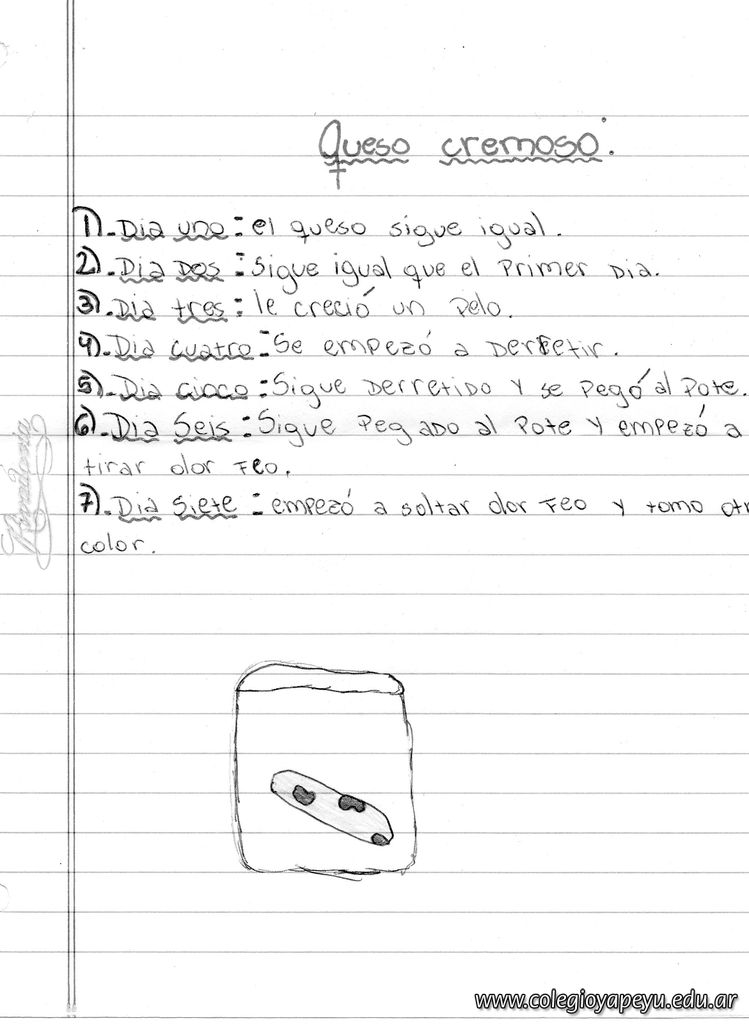 Queso cremoso.
1)-Dia uno: el queso sigue igual.
2)-Dia Dos: Sigue igual que el Primer Dia.
3)-Dia tres: le creció un Pelo.
4)-Dia cuatro: Se empezó a Derretir.
5)-Dia Cinco: Sigue Derretido y se Pegó al Pote.
6)-Dia Seis: Sigue Pegado al Pote y empezó a
tirar olor Feo.
7)-Dia Siete: empezó a soltar olor Feo y tomo otr
color.
Rivadavia
www.colegioyapeyu.edu.ar